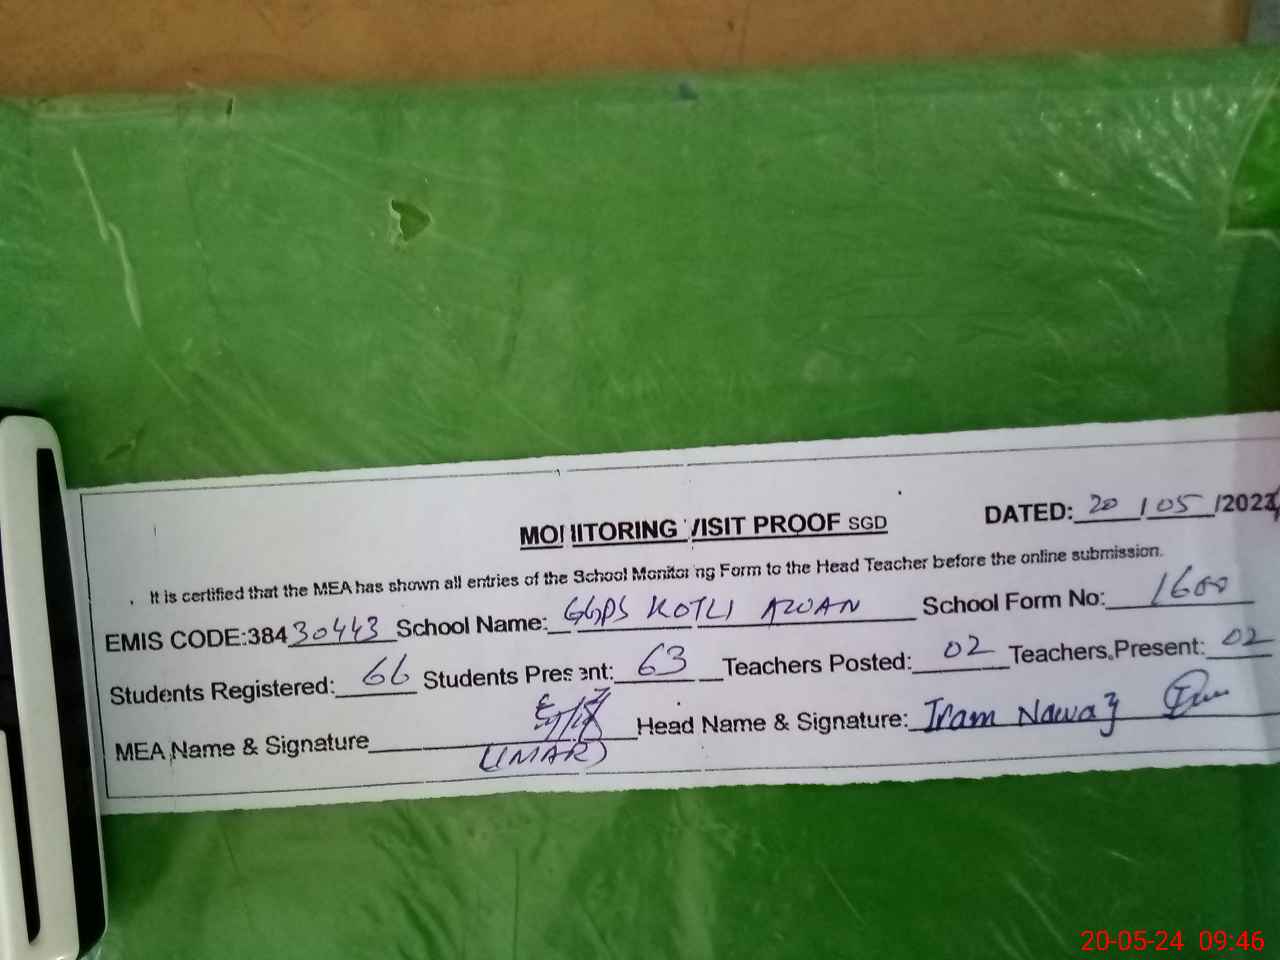 MONITORING VISIT PROOF SGD
DATED: 20/05/2024
It is certified that the MEA has shown all entries of the School Monitoring Form to the Head Teacher before the online submission.
EMIS CODE:38430443 School Name: GGPS KOTLI AWAN School Form No: 1600
Students Registered: 66 Students Present: 63 Teachers Posted: 02 Teachers Present: 02
MEA Name & Signature (UMAR) Head Name & Signature: Iram Nawaz
20-05-24 09:46